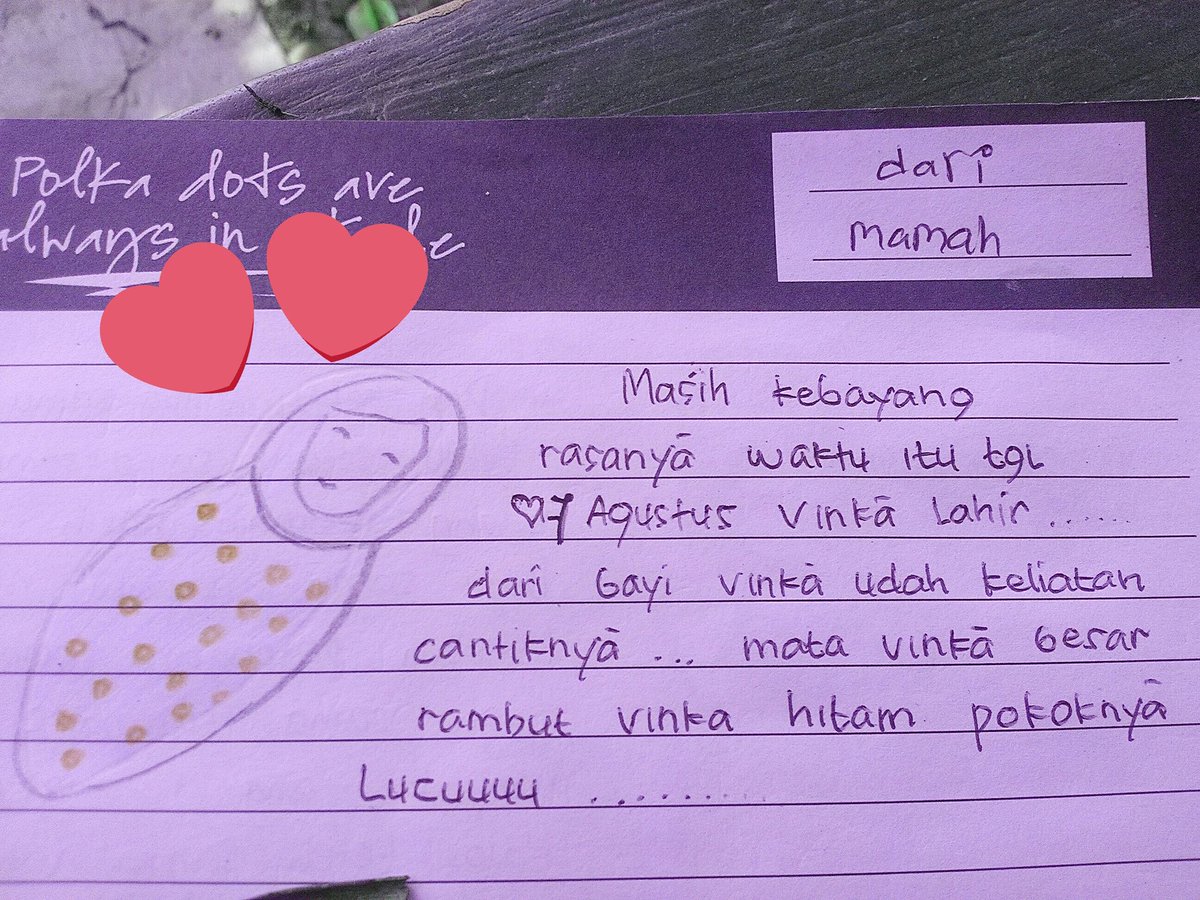 Polka dots are
always in
dari
mamah
Masih kebayang
rasanyā waktu itu tgl
♡7 Agustus vinkā Lahir ......
dari bayi vinkā udah keliatan
cantiknyā ... mata vinkā besar
rambut vinka hitam pokoknyā
Lucuuuu ..........